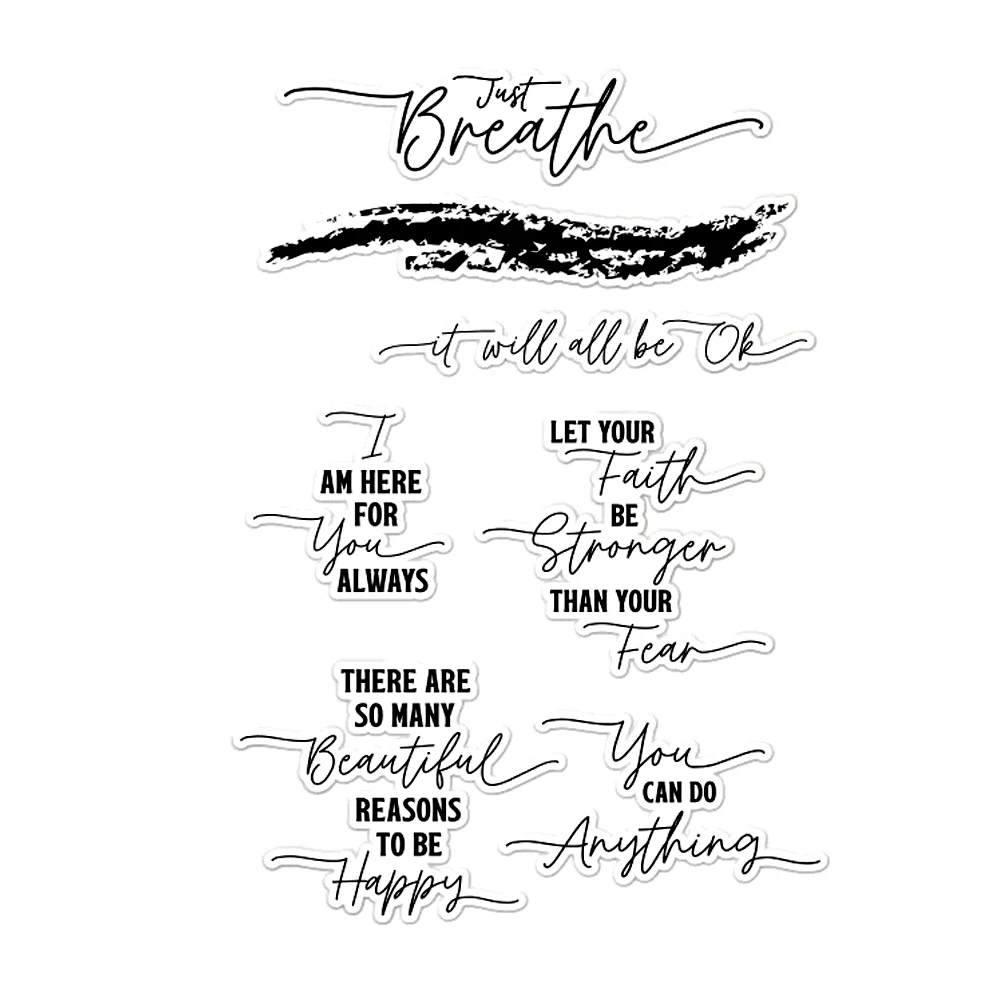 Just
Breathe
it will all be Ok
I
AM HERE
FOR
You
ALWAYS
LET YOUR
Faith
BE
Stronger
THAN YOUR
Fear
THERE ARE
SO MANY
Beautiful
REASONS
TO BE
Happy
You
CAN DO
Anything